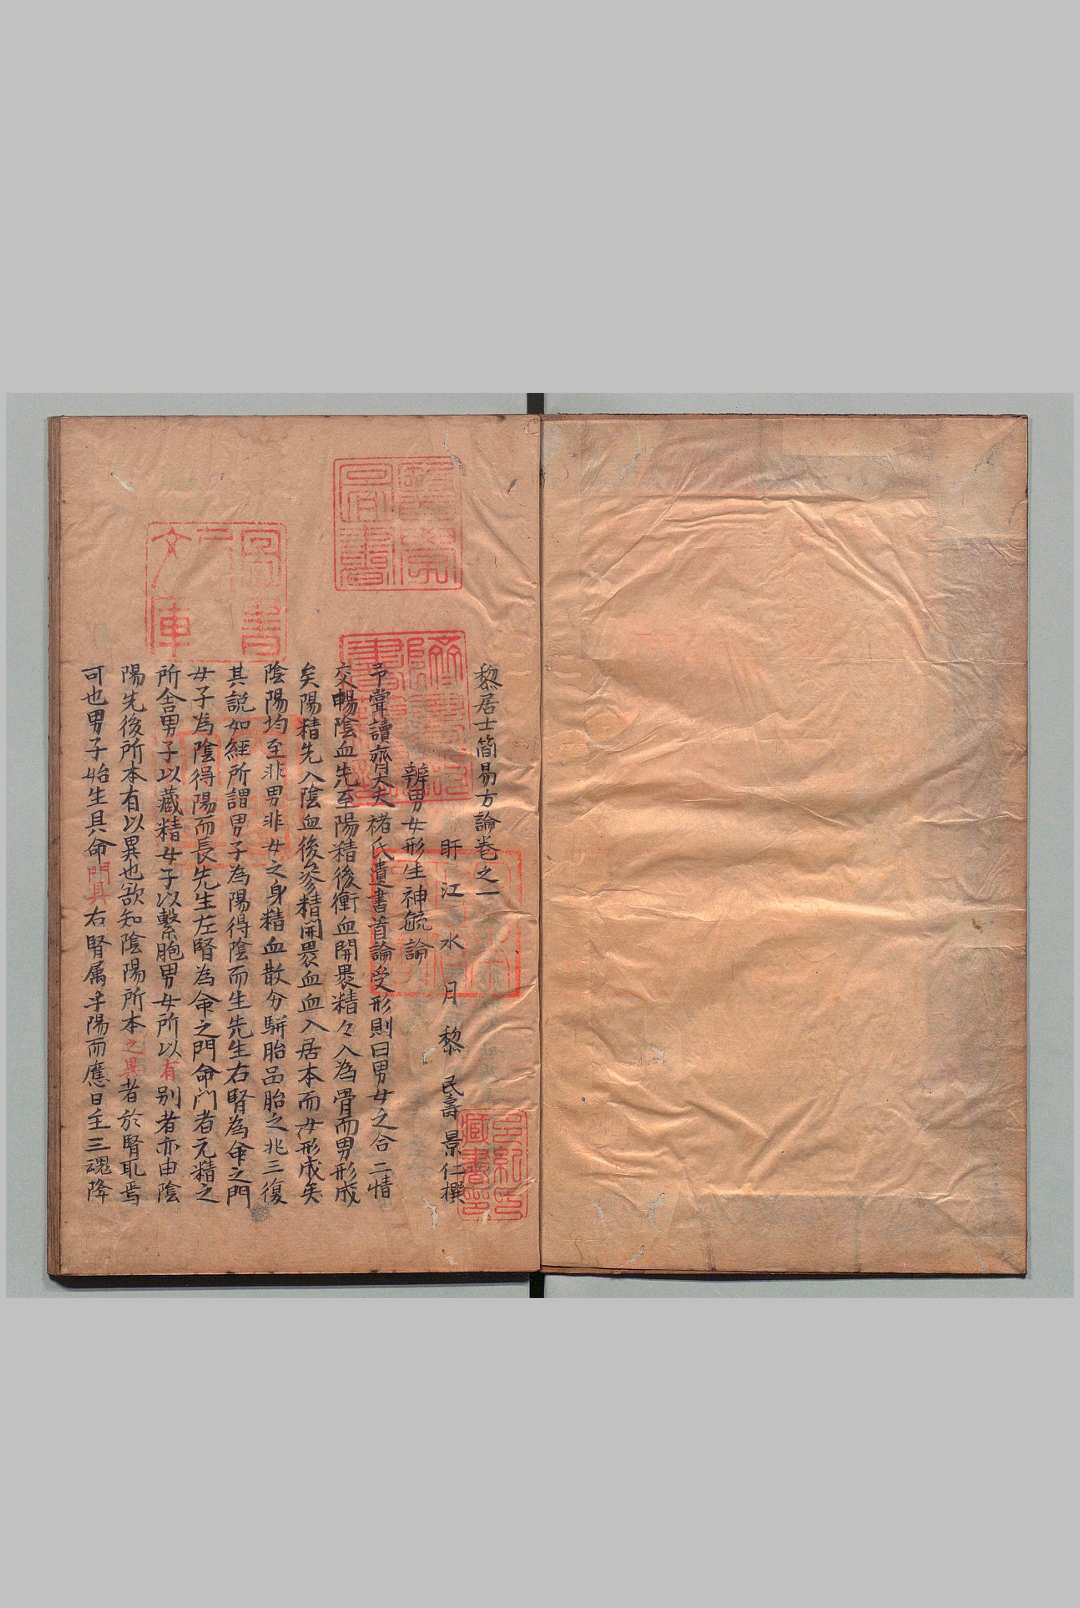 黎居士簡易方論巻之一
盱江水月黎民壽景仁撰
辨男女形生神毓論
予嘗讀齊大夫褚氏遺書首論受形則曰男女之合二情
交暢陰血先至陽精後衝血開褁精々入為骨而男形成
矣陽精先入陰血後參精開褁血血入居本而女形成矣
陰陽均至非男非女之身精血散分駢胎品胎之兆三復
其説如經所謂男子為陽得陰而生先生右腎為命之門
女子為陰得陽而長先生左腎為命之門命門者元精之
所舎男子以藏精女子以繋胞男女所以有别者亦由陰
陽先後所本有以異也欲知陰陽所本之異者於腎耴焉
可也男子始生具命門具右腎属乎陽而應日主三魂降
文庫